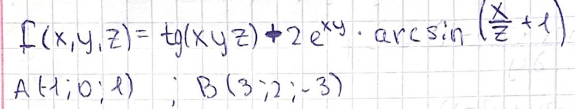 f(x,y,z)= tg(xyz)+2e^xy · arcsin (x/z +1)
A(-1;0;1) ; B(3;2;-3)